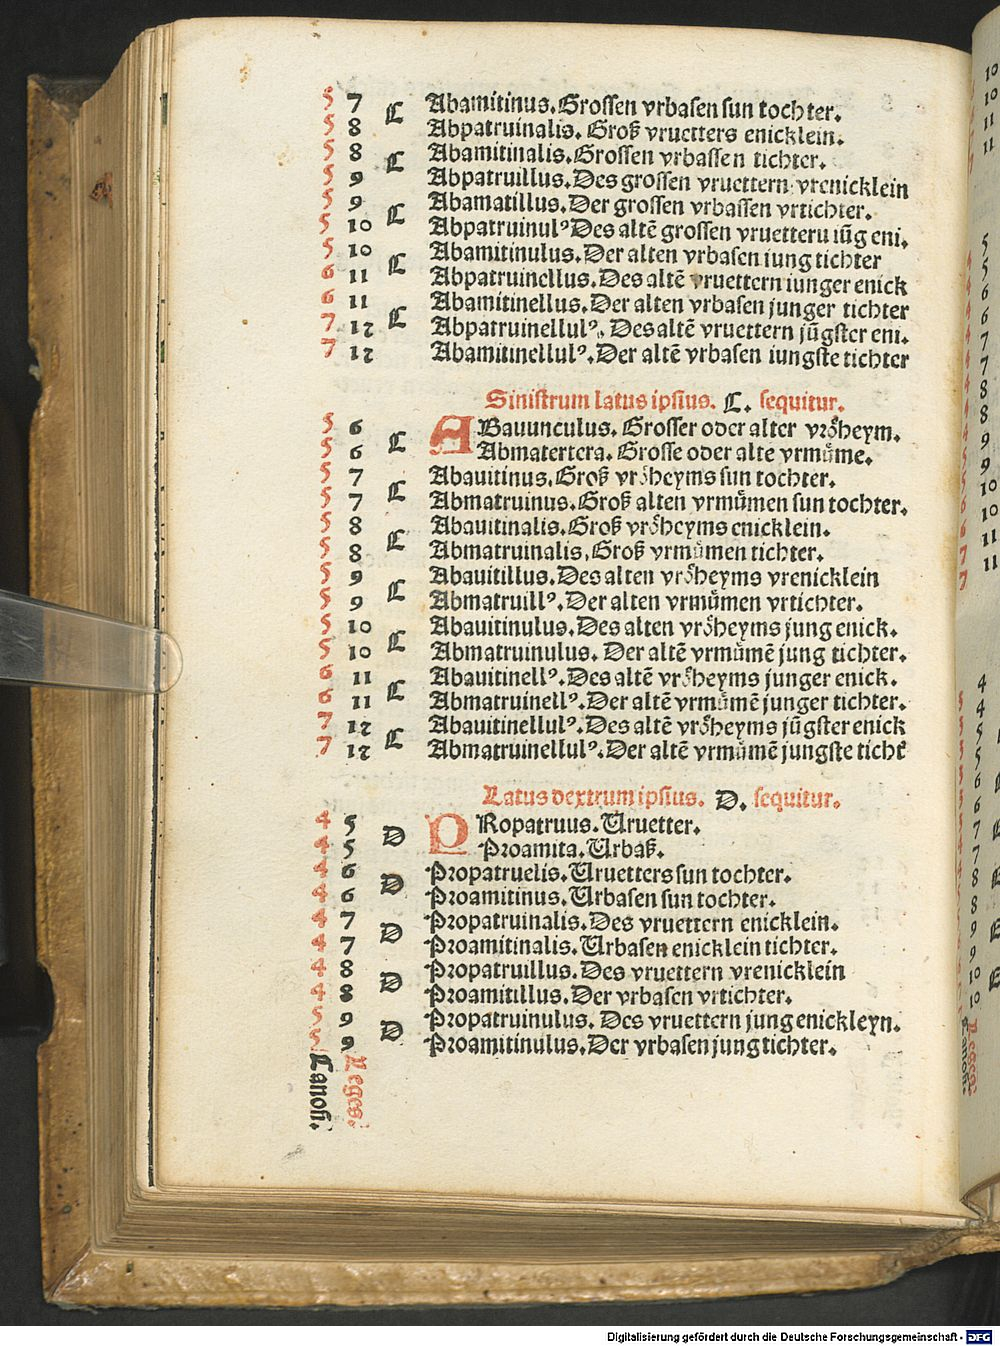 5 7 C Abamitinus. Grossen vrbasen sun tochter.
5 8 Abpatruinalis. Groß vruetters enicklein.
5 8 C Abamitinalis. Grossen vrbassen tichter.
5 9 Abpatruillus. Des grossen vruettern vrenicklein
5 9 C Abamatillus. Der grossen vrbassen vrtichter.
5 10 Abpatruinulꝰ Des altē grossen vruetteru iūg eni.
5 10 C Abamitinulus. Der alten vrbasen iung tichter
6 11 Abpatruinellus. Des altē vruettern iunger enick
6 11 C Abamitinellus. Der alten vrbasen junger tichter
7 12 Abpatruinellulꝰ. Des altē vruettern jūgster eni.
7 12 Abamitinellulꝰ. Der altē vrbasen iungste tichter
Sinistrum latus ipsius. C. sequitur.
5 6 C ABauunculus. Grosser oder alter vroͤheym.
5 6 Abmatertera. Grosse oder alte vrmuͤme.
5 7 C Abauitinus. Groß vroͤheyms sun tochter.
5 7 Abmatruinus. Groß alten vrmuͤmen sun tochter.
5 8 C Abauitinalis. Groß vroͤheyms enicklein.
5 8 Abmatruinalis. Groß vrmuͤmen tichter.
5 9 C Abauitillus. Des alten vroͤheyms vrenicklein
5 9 Abmatruillꝰ. Der alten vrmuͤmen vrtichter.
5 10 C Abauitinulus. Des alten vroͤheyms jung enick.
5 10 Abmatruinulus. Der altē vrmuͤmē jung tichter.
6 11 C Abauitinellꝰ. Des altē vroͤheyms junger enick.
6 11 Abmatruinellꝰ. Der altē vrmuͤmē junger tichter.
7 12 C Abauitinellulꝰ. Des altē vroͤheyms jūgster enick
7 12 Abmatruinellulꝰ. Der altē vrmuͤmē jungste tichē
Latus dextrum ipsius. D. sequitur.
4 5 D PRopatruus. Vruetter.
4 5 Proamita. Vrbaß.
4 6 D Propatruelis. Vruetters sun tochter.
4 6 Proamitinus. Vrbasen sun tochter.
4 7 D Propatruinalis. Des vruettern enicklein.
4 7 Proamitinalis. Vrbasen enicklein tichter.
4 8 D Propatruillus. Des vruettern vrenicklein
4 8 Proamitillus. Der vrbasen vrtichter.
5 9 D Propatruinulus. Des vruettern jung enickleyn.
5 9 Proamitinulus. Der vrbasen jung tichter.
Canoñ.
Leges.
10
10
11
11
5
5
6
6
7
7
8
8
9
9
10
10
11
11
4
4
5
5
6
6
7
7
8
8
9
9
10
10
Leges.
Canoñ.
Digitalisierung gefördert durch die Deutsche Forschungsgemeinschaft - DFG